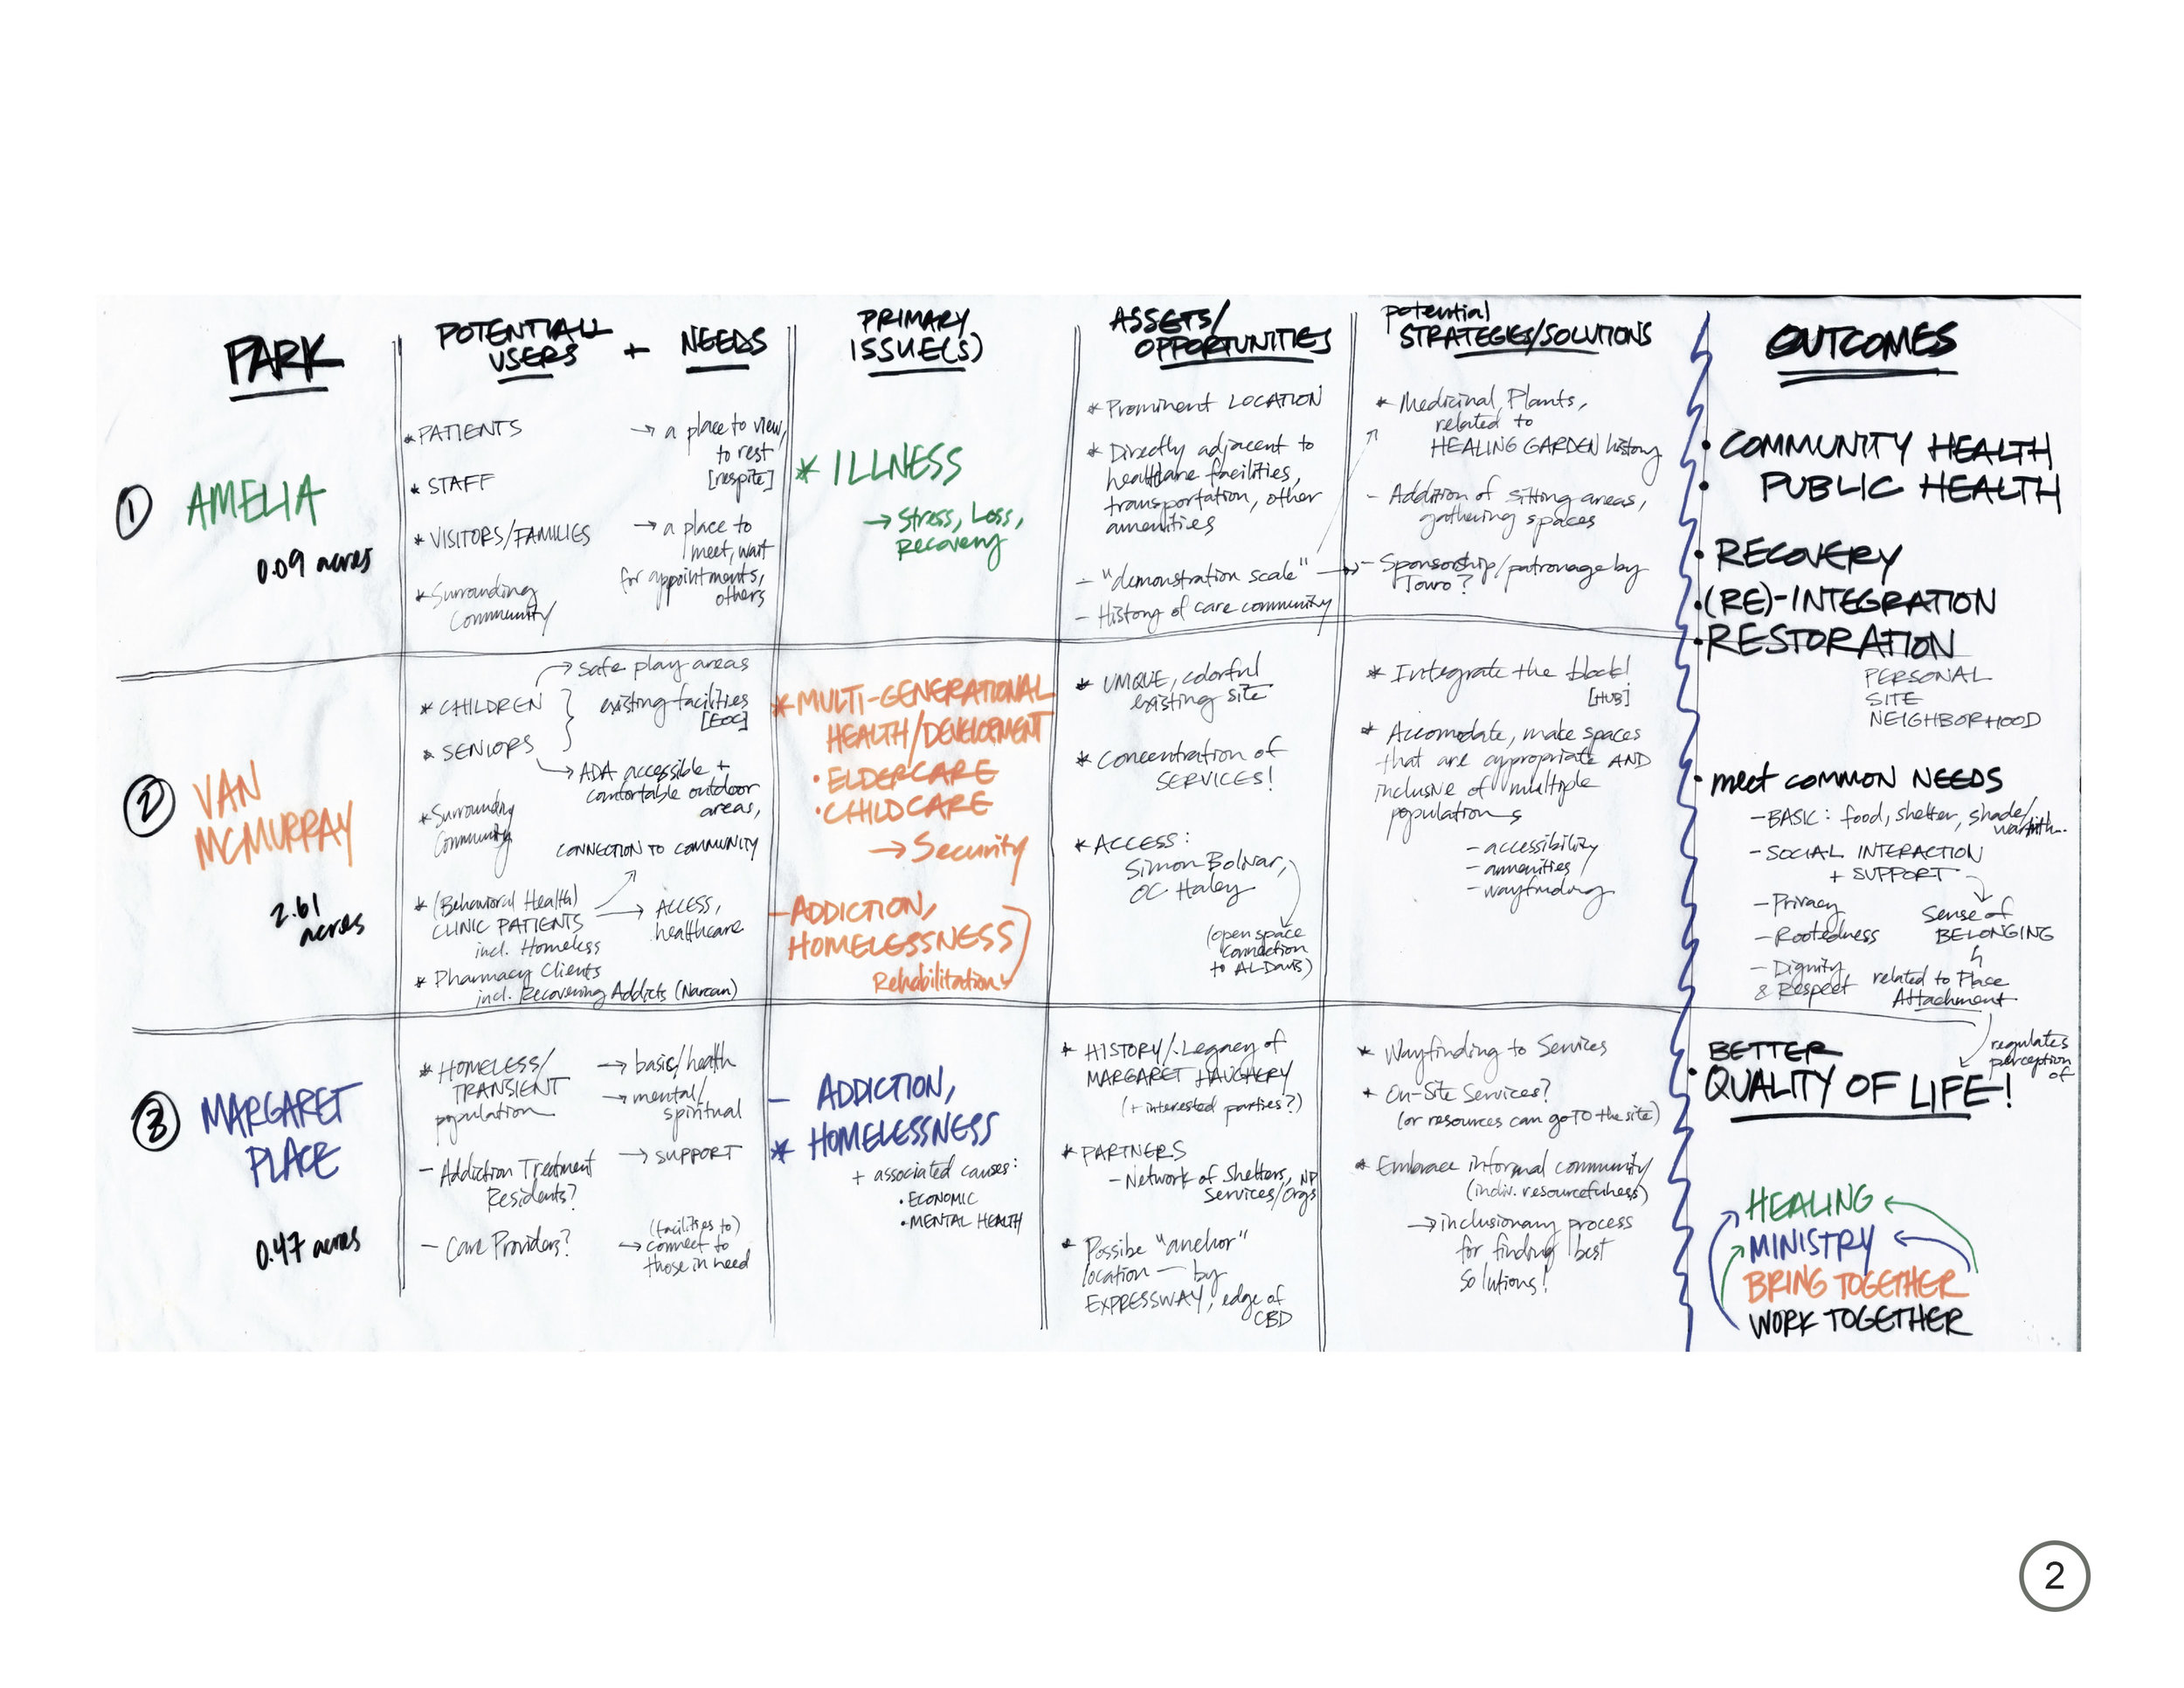 PARK
POTENTIAL
USERS + NEEDS
PRIMARY
ISSUE(S)
ASSETS/
OPPORTUNITIES
potential
STRATEGIES/SOLUTIONS
OUTCOMES
① AMELIA
0.09 acres
* PATIENTS
* STAFF
* VISITORS/FAMILIES
* Surrounding
Community
→ a place to view,
to rest
[respite]
→ a place to
meet, wait
for appointments,
others
* ILLNESS
→ Stress, Loss,
Recovery
* Prominent LOCATION
* Directly adjacent to
healthcare facilities,
transportation, other
amenities
- "demonstration scale" →
- History of care community
* Medicinal Plants,
related to
HEALING GARDEN history
- Addition of sitting areas,
gathering spaces
- Sponsorship/patronage by
Touro?
② VAN
MCMURRAY
2.61
acres
* CHILDREN
* SENIORS
* Surrounding
Community
* (Behavioral Health)
CLINIC PATIENTS
incl. Homeless
* Pharmacy Clients
incl. Recovering Addicts (Narcan)
→ safe play areas
existing facilities
[EOC]
→ ADA accessible +
comfortable outdoor
areas,
CONNECTION TO COMMUNITY
→ ACCESS,
healthcare
* MULTI-GENERATIONAL
HEALTH/DEVELOPMENT
• ELDERCARE
• CHILDCARE
→ Security
- ADDICTION,
HOMELESSNESS
Rehabilitation
* UNIQUE, colorful
existing site
* Concentration of
SERVICES!
* ACCESS:
Simon Bolivar,
OC Haley
(open space
connection
to AL Davis)
* Integrate the block!
[HUB]
* Accomodate, make spaces
that are appropriate AND
inclusive of multiple
populations
- accessibility
- amenities
- wayfinding
③ MARGARET
PLACE
0.47 acres
* HOMELESS/
TRANSIENT
population
- Addiction Treatment
Residents?
- Care Providers?
→ basic/health
→ mental/
spiritual
→ SUPPORT
(facilities to)
→ connect to
those in need
- ADDICTION,
* HOMELESSNESS
+ associated causes:
• ECONOMIC
• MENTAL HEALTH
* HISTORY/Legacy of
MARGARET HAUGHERY
(+ interested parties?)
* PARTNERS
- Network of Shelters, NP
Services/Orgs
* Possibe "anchor"
location — by
EXPRESSWAY, edge of
CBD
* Wayfinding to Services
* On-Site Services?
(or resources can go TO the site)
* Embrace informal community
(indiv. resourcefulness)
→ inclusionary process
for finding best
solutions!
• COMMUNITY HEALTH
• PUBLIC HEALTH
• RECOVERY
• (RE)-INTEGRATION
• RESTORATION
PERSONAL
SITE
NEIGHBORHOOD
• meet COMMON NEEDS
- BASIC: food, shelter, shade/
warmth..
- SOCIAL INTERACTION
+ SUPPORT
- Privacy
- Rootedness
- Dignity
& Respect
Sense of
BELONGING
related to Place
Attachment
regulates
perception
of
BETTER
• QUALITY OF LIFE!
HEALING
MINISTRY
BRING TOGETHER
WORK TOGETHER
2